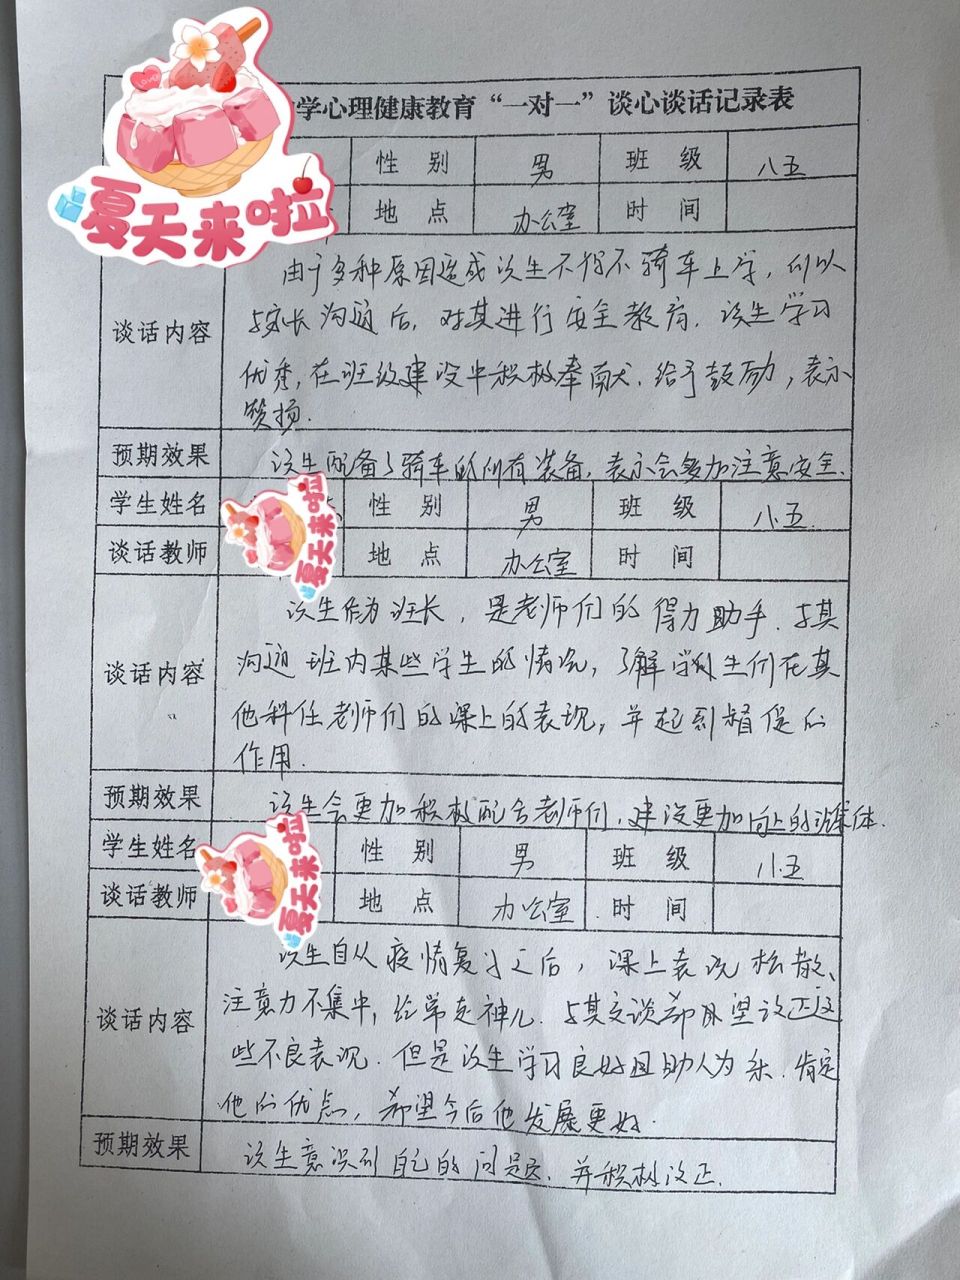 学心理健康教育“一对一”谈心谈话记录表
性 别 男 班 级 八五
地 点 办公室 时 间
夏天来啦
LOVE
谈话内容
由于多种原因造成该生不得不骑车上学,所以
与家长沟通后,对其进行安全教育.该生学习
优秀,在班级建设中积极奉献.给予鼓励,表示
赞扬.
预期效果 该生配备了骑车的所有装备,表示会多加注意安全.
学生姓名 性 别 男 班 级 八.五
谈话教师 地 点 办公室 时 间
夏天来啦
谈话内容
该生作为班长,是老师们的得力助手.与其
沟通班内某些学生的情况,了解学生们在其
他科任老师们的课上的表现,并起到督促的
作用.
预期效果 该生会更加积极配合老师们,建设更加向上的班集体.
学生姓名 性 别 男 班 级 八.五
谈话教师 地 点 办公室 时 间
夏天来啦
谈话内容
该生自从疫情复习之后,课上表现松散、
注意力不集中,经常走神儿.与其交谈希望改正这
些不良表现.但是该生学习良好且助人为乐.肯定
他的优点,希望今后他发展更好.
预期效果 该生意识到自己的问题,并积极改正.